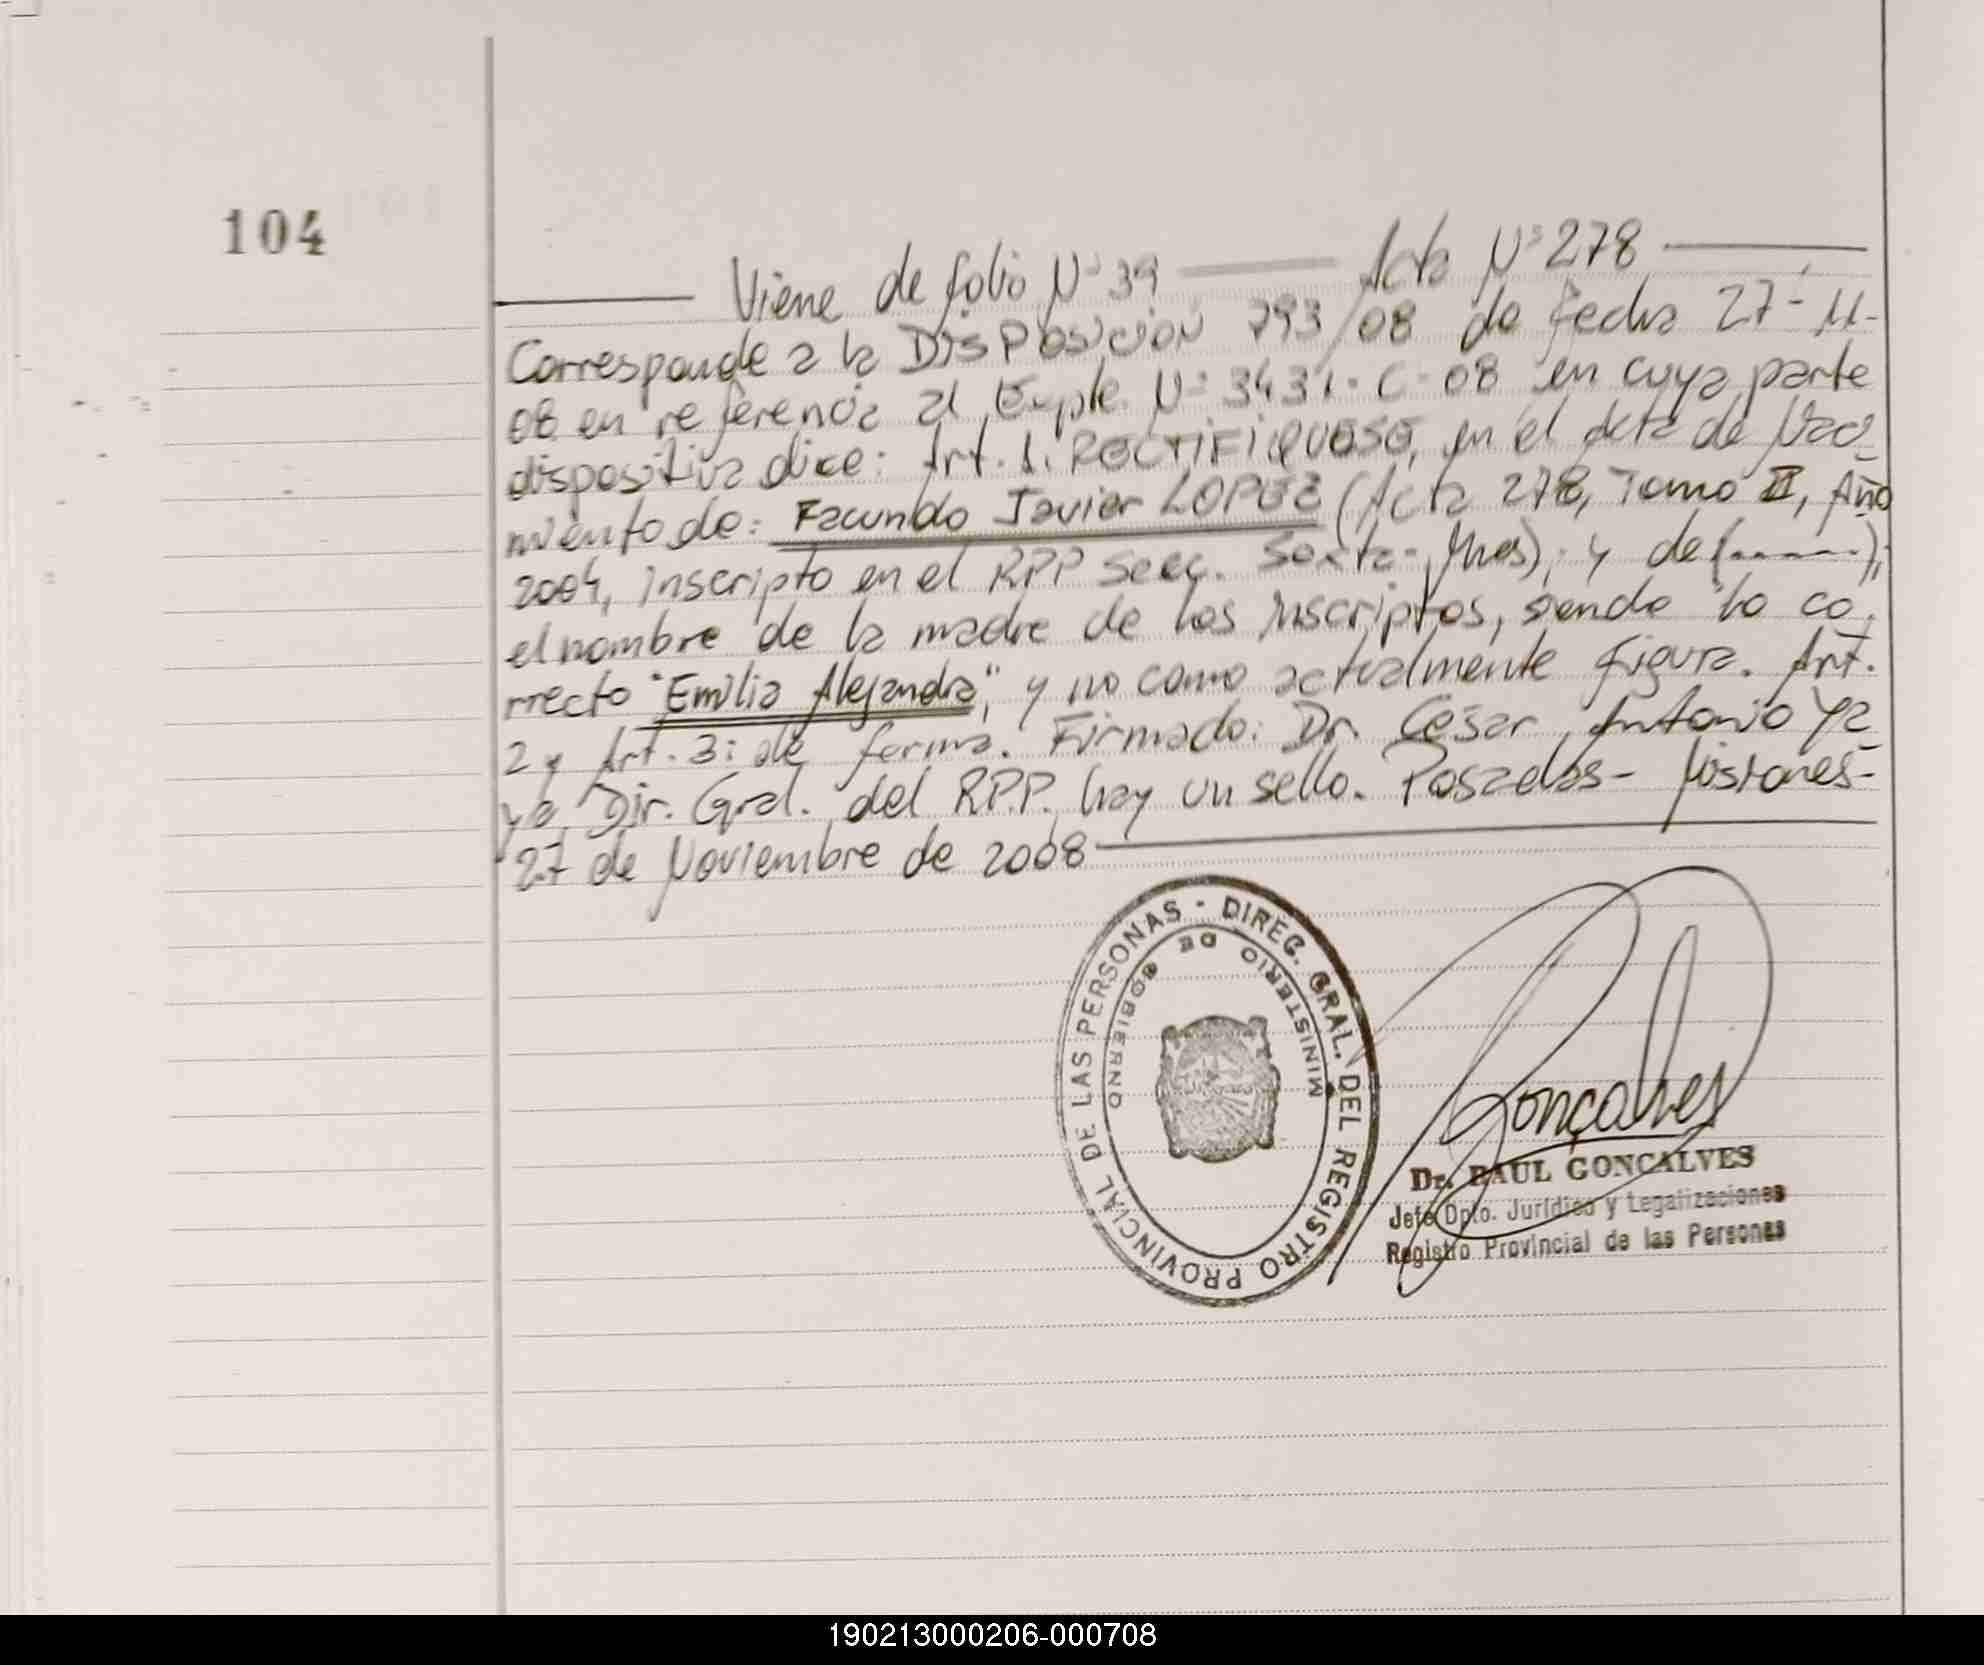 104
Viene de folio Nº 39 — Acta Nº 278 —
Corresponde a la DISPOSICION 793/08 de fecha 27-11-
08 en referencia al Expte. Nº 3431-C-08 en cuya parte
dispositiva dice: Art. 1. RECTIFIQUESE, en el Acta de Naci-
miento de: Facundo Javier LOPEZ (Acta 278, Tomo II, Año
2004, inscripto en el RPP Secc. Sexta-Mnes); y de (......);
el nombre de la madre de los inscriptos, siendo lo co-
rrecto "Emilia Alejandra", y no como actualmente figura. Art.
2 y Art. 3: de forma. Firmado: Dr. Cesar Antonio Ya-
ya Dir. Gral. del R.P.P. hay un sello. Posadas- Misiones-
27 de Noviembre de 2008
DIREC. GRAL. DEL REGISTRO PROVINCIAL DE LAS PERSONAS -
MINISTERIO DE GOBIERNO
Gonçalves
Dr. RAUL GONCALVES
Jefe Dpto. Jurídico y Legalizaciones
Registro Provincial de las Personas
190213000206-000708